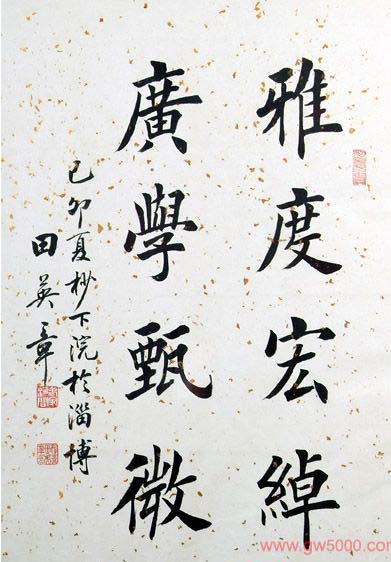 雅度宏綽
廣學甄微
己卯夏杪下浣於淄博
田英章
www.gw5000.com